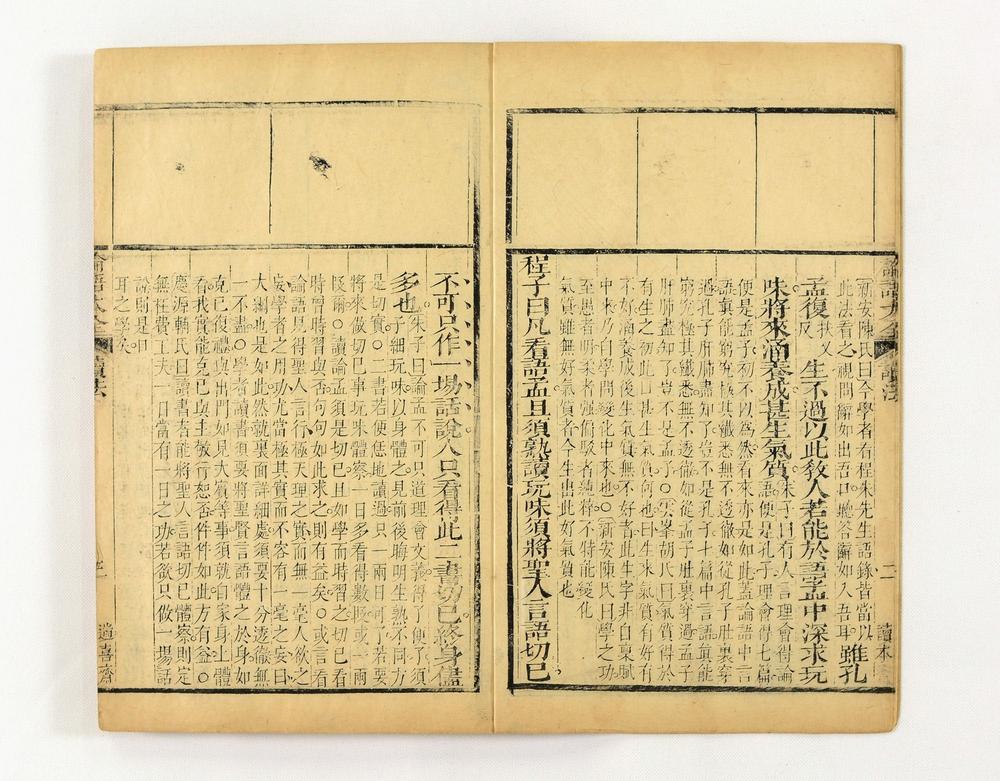 新安陳氏曰今學者有程朱先生語錄皆當以
此法看之視問辭如出吾口聽答辭如入吾耳
雖孔
孟復
扶又
反
生不過以此教人若能於語孟中深求玩
味將來涵養成甚生氣質
朱子曰有人言理會得論
語便是孔子理會得七篇
便是孟子初不以為然看來亦是如此蓋論語中言
語真能窮究極其纖悉無不透徹如從孔子肚裏穿
過孔子肝肺盡知了豈不是孔子七篇中言語真能
窮究極其纖悉無不透徹如從孟子肚裏穿過孟子
肝肺盡知了豈不是孟子○雲峯胡氏曰氣質得於
有生之初此曰甚生氣質何也曰生來氣質有好有
不好涵養成後生氣質無不好者此生字非自稟賦
中來乃自學問變化中來也○新安陳氏曰學之功
至愚者明柔者強偏駁者純粹不特能變化
氣質雖無好氣質者今生出此好氣質也
程子曰凡看語孟且須熟讀玩味須將聖人言語切己
不可只作一場話說人只看得此二書切己終身儘
多也
朱子曰論孟不可只道理會文義得了便了須
子細玩味以身體之見前後晦明生熟不同方
是切實○二書若便恁地讀過只一兩日可了若要
將來做切己事玩味體察一日多看得數段或一兩
段爾○讀論孟須是切己且如學而時習之切己看
時曾時習與否句句如此求之則有益矣○或言看
論語見得聖人言行極天理之實而無一毫人欲之
妄學者之用功尤當極其實而不容有一毫之妄曰
大綱也是如此然就裏面詳細處須要十分透徹無
一不盡○學者讀書須要將聖賢言語體之於身如
克己復禮與出門如見大賓等事須就自家身上體
看我實能克己與主敬行恕否件件如此方有益○
慶源輔氏曰讀書者能將聖人言語切己體察則定
無枉費工夫一日當有一日之功若欲只做一場話
說則是口
耳之學矣
論語大全
讀法
二
讀本
論語大全
讀法
過喜齋